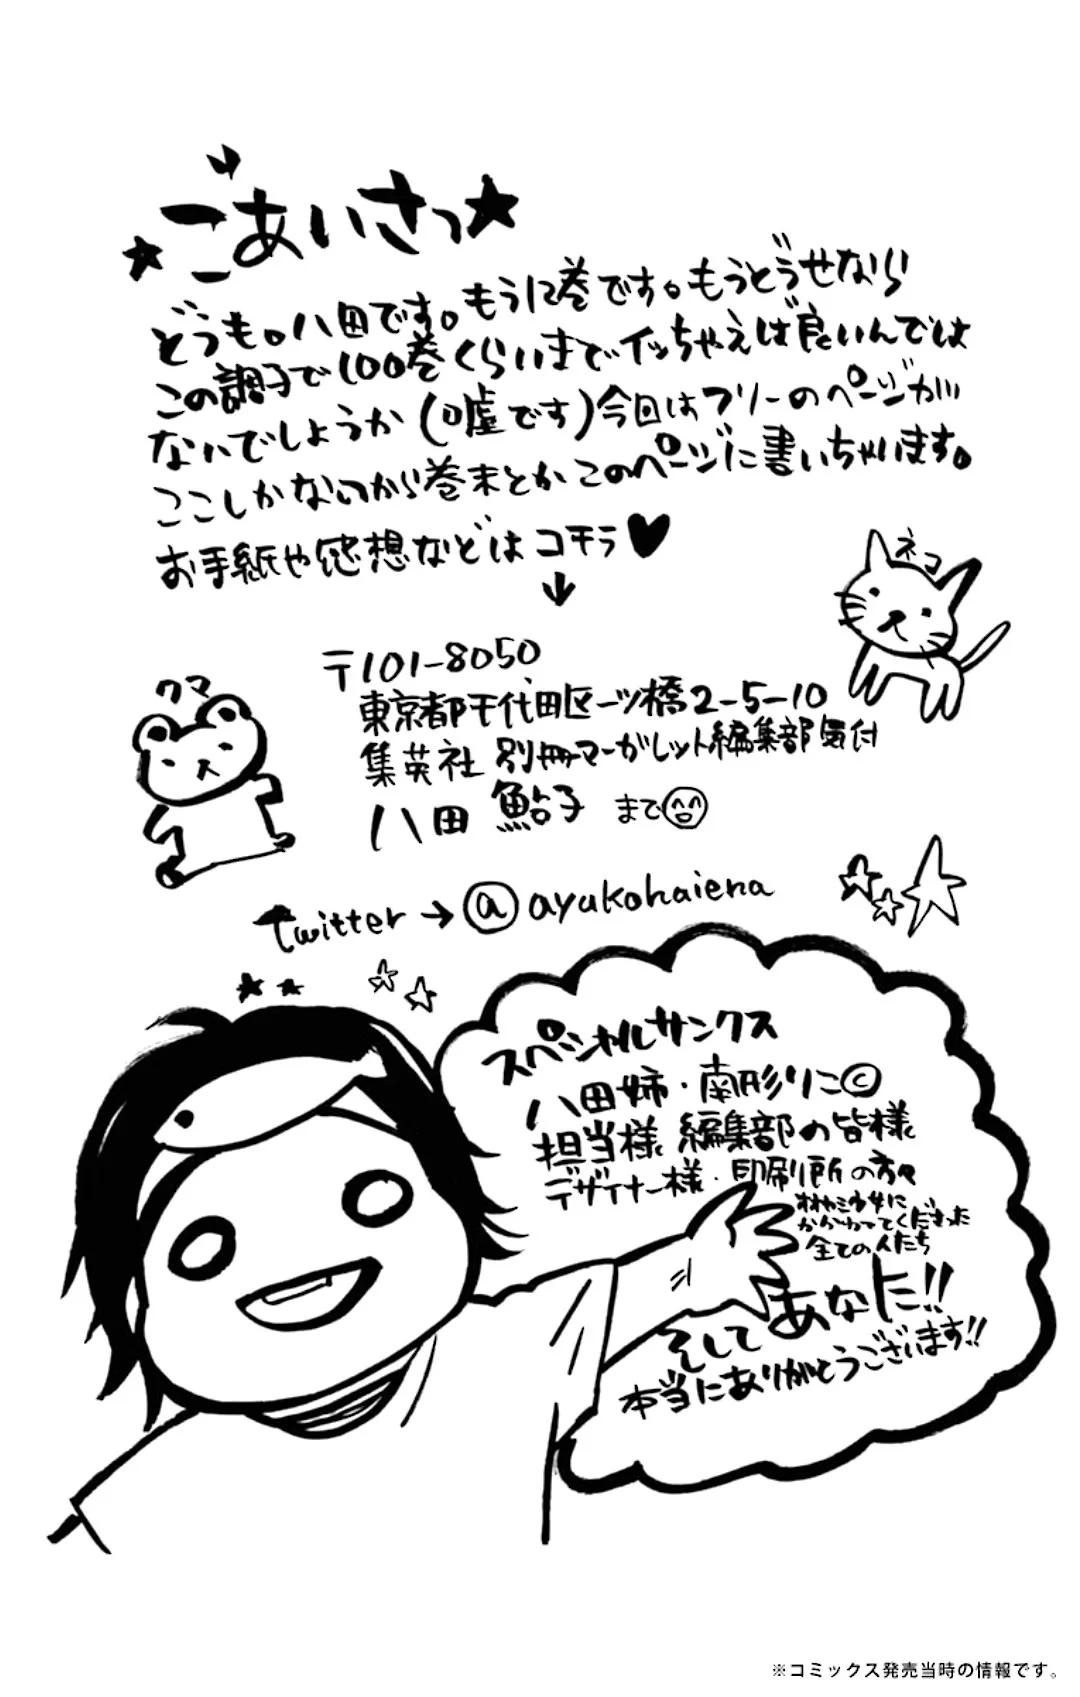 ごあいさつ
どうも。八田です。もう12巻です。もうどうせなら
この調子で100巻くらいまでイッちゃえば良いんでは
ないでしょうか(嘘です)今回はフリーのページが
ここしかないから巻末とかこのページに書いちゃいます。
お手紙や感想などはコチラ♥
↓
ネコ
クマ
〒101-8050
東京都千代田区一ツ橋2-5-10
集英社 別冊マーガレット編集部気付
八田 鮎子 まで
twitter→@ayukohaiena
スペシャルサンクス
八田姉・南形りこⓒ
担当様 編集部の皆様
デザイナー様・印刷所の方々
オオカミ少女に
かかわってくださった
全ての人たち
そしてあなたに!!
本当にありがとうございます!!
※コミックス発売当時の情報です。